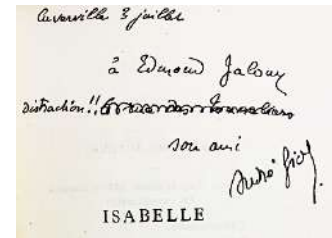 Cuverville 3 juillet
à Edmond Jaloux
Distraction!!
son ami
André Gide
ISABELLE